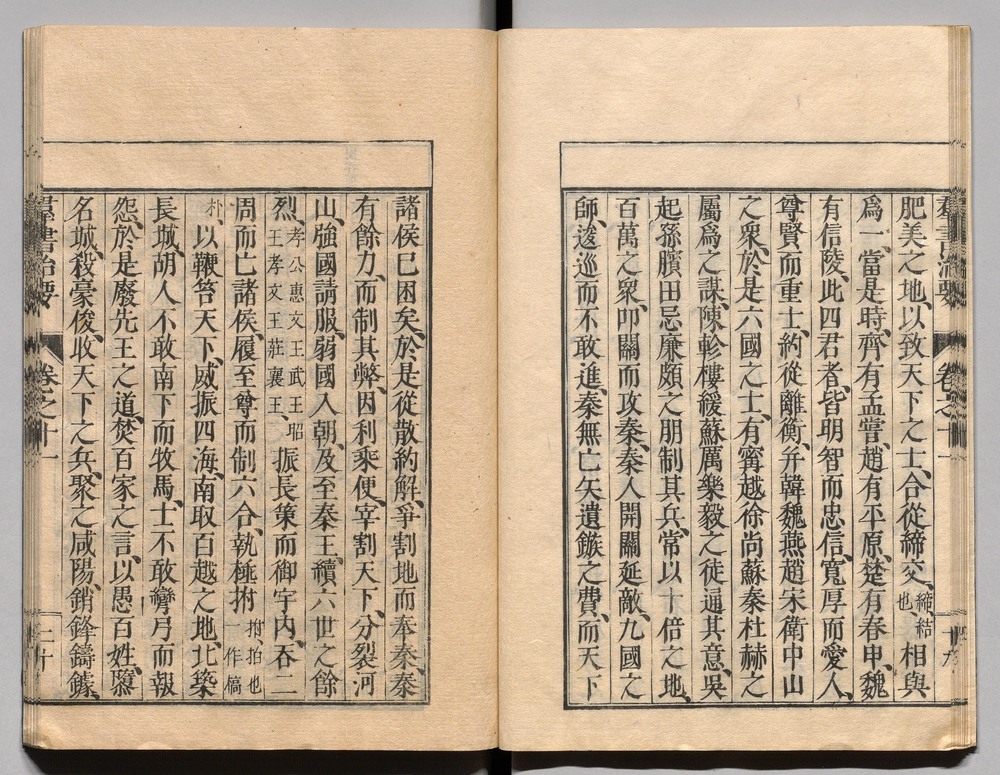 羣書治要 卷之十一 十九
肥美之地、以致天下之士、合從締交、締、結也、相與
爲一、當是時、齊有孟嘗、趙有平原、楚有春申、魏
有信陵、此四君者、皆明智而忠信、寬厚而愛人、
尊賢而重士、約從離衡、幷韓魏燕趙宋衛中山
之衆、於是六國之士、有甯越徐尚蘇秦杜赫之
屬爲之謀、陳軫樓緩蘇厲樂毅之徒通其意、吳
起孫臏田忌廉頗之朋制其兵、常以十倍之地、
百萬之衆、叩關而攻秦、秦人開關延敵、九國之
師、逡巡而不敢進、秦無亡矢遺鏃之費、而天下
諸侯已困矣、於是從散約解、爭割地而奉秦、秦
有餘力、而制其弊、因利乘便、宰割天下、分裂河
山、強國請服、弱國入朝、及至秦王、續六世之餘
烈、孝公惠文王武王昭王孝文王莊襄王、振長策而御宇內、吞二
周而亡諸侯、履至尊而制六合、執棰拊拊、拍也一作槁
朴、以鞭笞天下、威振四海、南取百越之地、北築
長城、胡人不敢南下而牧馬、士不敢彎弓而報
怨、於是廢先王之道、焚百家之言、以愚百姓、隳
名城、殺豪俊、收天下之兵、聚之咸陽、銷鋒鑄鐻、
羣書治要 卷之十一 二十